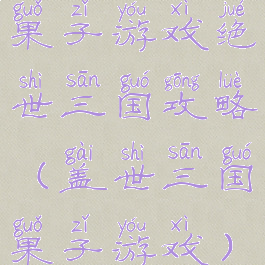 guǒ zǐ yóu xì jué
果子游戏绝
shì sān guó gōng lüè
世三国攻略
gài shì sān guó
（盖世三国
guǒ zǐ yóu xì
果子游戏）